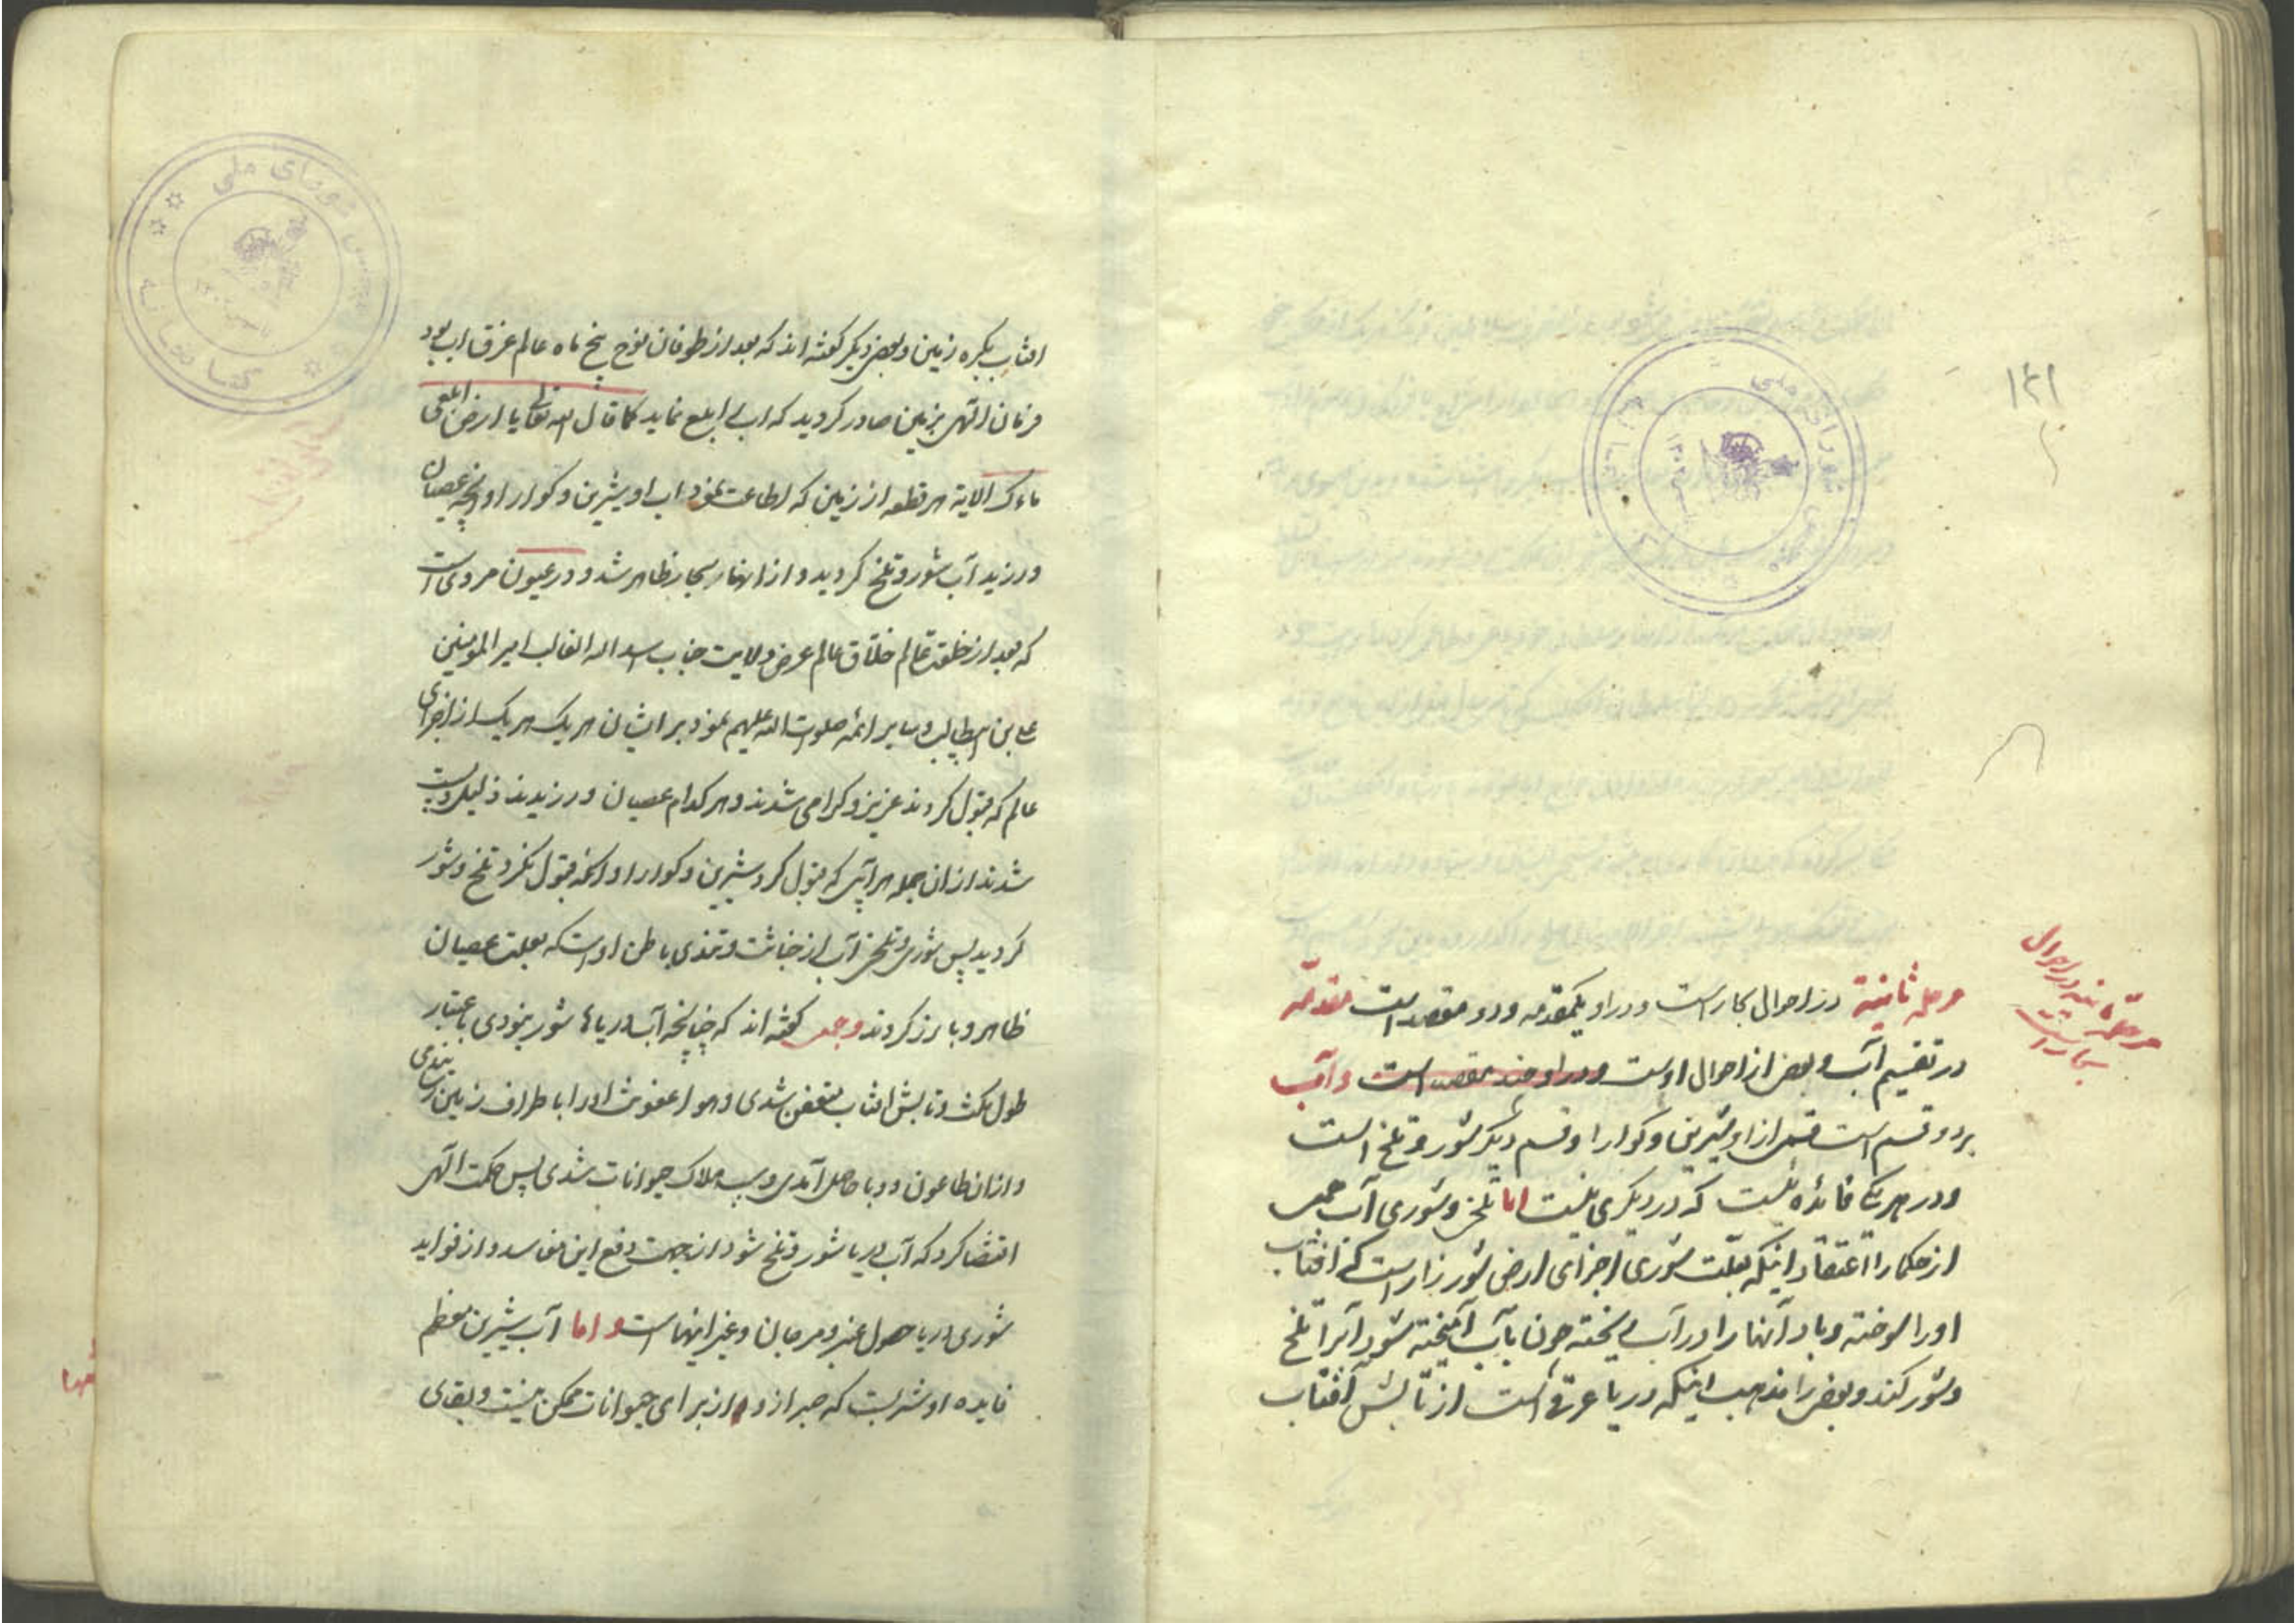 مرحله ثانیة در احوال بحار است و در او یکمقدمه و دو مقصد است مقدمه
در تقسیم آب و بعض از احوال اوست و در او چند مقصد است و آب
بر دو قسم است قسمی از او شیرین و کوارا و قسم دیکر شور و تلخ است
و در هر یک فائده نیست که در دیکری نیست اما تلخی و شوری آب جمعی
از حکما را اعتقاد اینکه بعلت شوری اجزای ارض شور زار است که افتاب
او را سوخته و باد آنها را در آب ریخته چون بآب آمیخته شود آنرا تلخ
و شور کند و بعضی را مذهب اینکه دریا عرق است از تابش آفتاب
مرحله ثانیه در احوال
بحار است
۱۴۱
افتاب بکره زمین و بعضی دیکر کفته اند که بعد از طوفان نوح پنج ماه عالم غرق اب بود
فرمان الهی بزمین صادر کردید که اب را بلع نماید کما قال الله تعالی یا ارض ابلعی
ماءک الایة هر قطعه از زمین که اطاعت نمود اب او شیرین و کوارا و آنچه عصیان
ورزید آب شور و تلخ کردید و از انها بحار ظاهر شد و در عیون مروی است
که بعد از خلقت عالم خلاق عالم عرض ولایت جناب اسد الله الغالب امیر المومنین
علی بن ابیطالب و سایر ائمه صلوات الله علیهم نمود بر ایشان هر یک هر یک از اجزای
عالم که قبول کردند عزیز و کرامی شدند و هر کدام عصیان ورزیدند ذلیل و پست
شدند از ان جمله هر آبی که قبول کرد شیرین و کوارا و آنچه قبول نکرد تلخ و شور
کردید پس شوری و تلخی آب از خباثت و باطن اوست که بعلت عصیان
ظاهر و بارز کردند و جمعی کفته اند که چنانچه آب دریاها شور نبودی باعتبار
طول مکث و تابش افتاب متعفن شدی و هوا عفونت او را باطراف زمین رسانیدی
و از ان طاعون و وبا حاصل آمدی و سبب هلاک حیوانات شدی پس حکمت الهی
اقتضا کرد که آب دریا شور و تلخ شود از جهت دفع این مفاسد و از فواید
شوری دریا حصول عنبر و مرجان و غیر اینهاست و اما آب شیرین معظم
فایده او شربست که صبر از او از برای حیوانات ممکن نیست و بقای
مجلس شورای ملی
کتابخانه